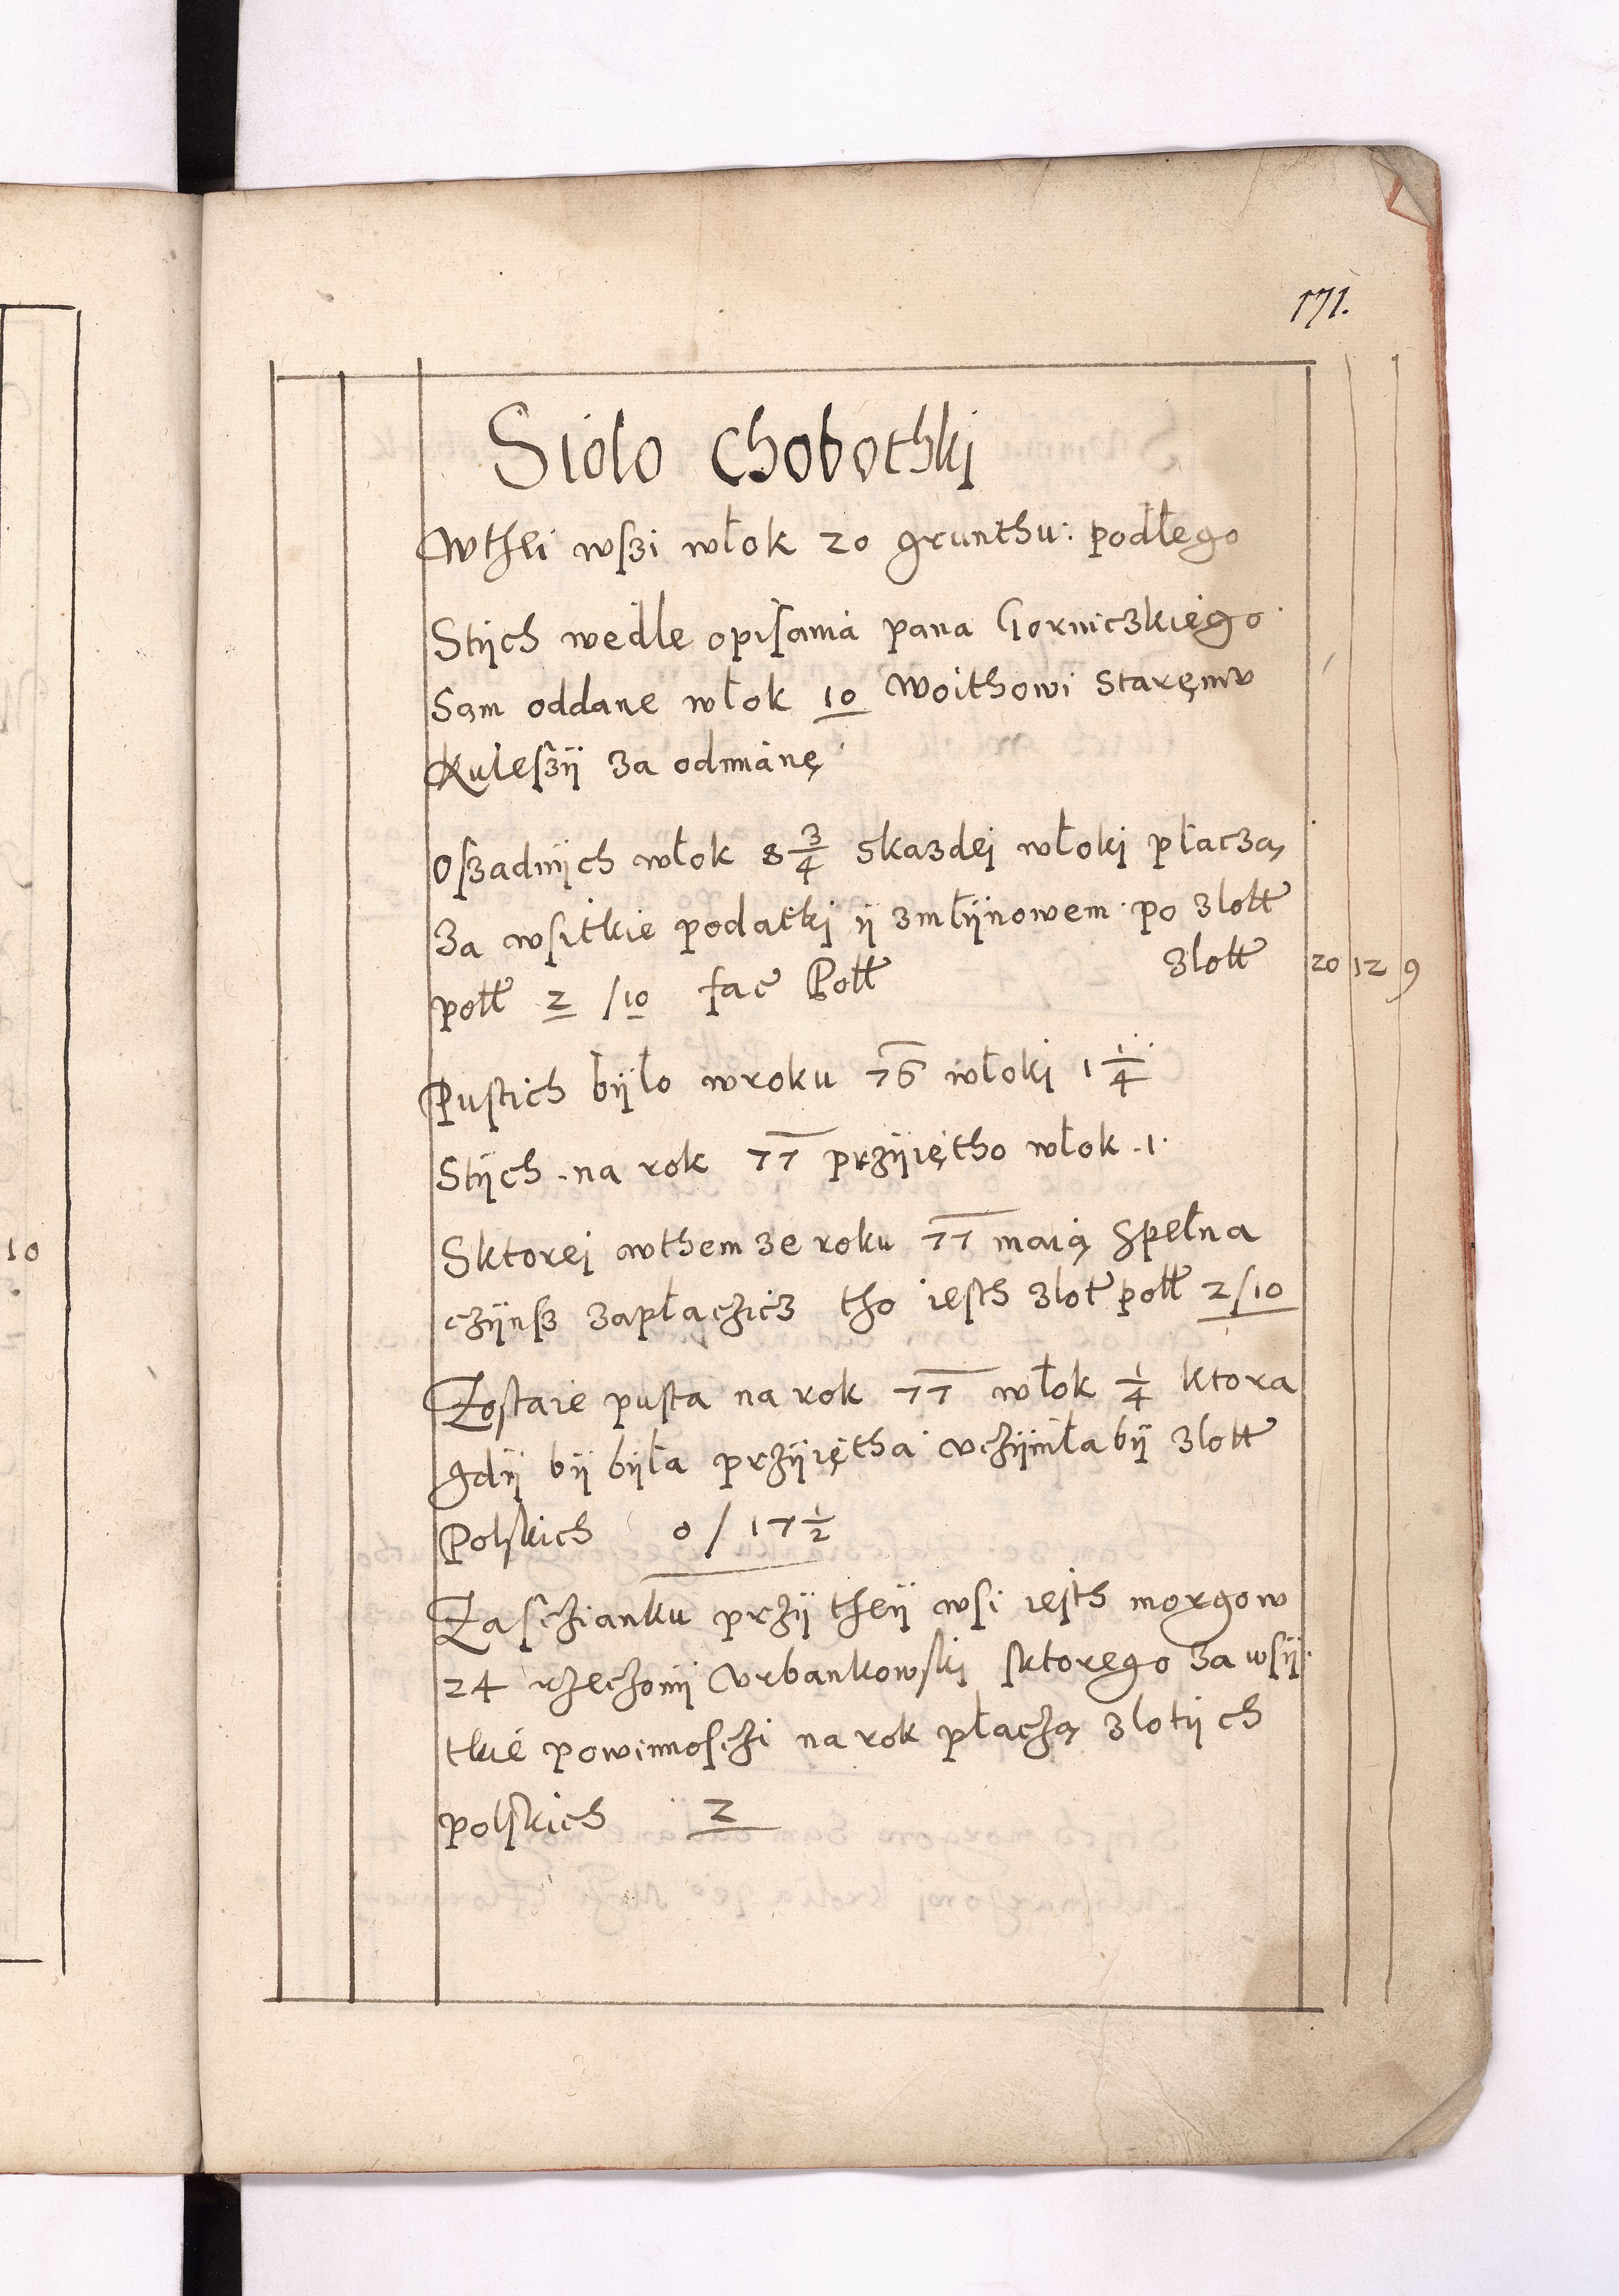 171.
Siolo Chobothki
Wthei wſzi włok 20 grunthu podłego
Stÿch wedle opiſania pana Gorniczkiego
Sąm oddane włok 10 Woithowi staręmv
Kuleſzÿ za odmianę
Oſzadnÿch włok 8 3/4 skazdei włoki płaczą
Za wſitkie podatki ÿ zmłÿnowem po złott
pott 2 /10 fac Pott złott 20 12 9
Puſtich bÿło wroku 76 włoki 1 1/4
Stÿch na rok 77 przÿiętho włok 1
Sktorei wthem ze roku 77 maią Spełna
czÿnſz zapłaczicz tho ieſth złot pott 2/10
Zoſtaie puſta na rok 77 włok 1/4 ktora
gdÿ bÿ bÿła przÿiętha vczÿniła bÿ złott
Polſkich 0 / 17 1/2
Zaſczianku przÿ theÿ wſi ieſth morgow
24 rzeczonÿ Vrbankowſki ſktorego za wſÿ
tkie powinnoſczi na rok płaczą złotÿch
polſkich 2
10